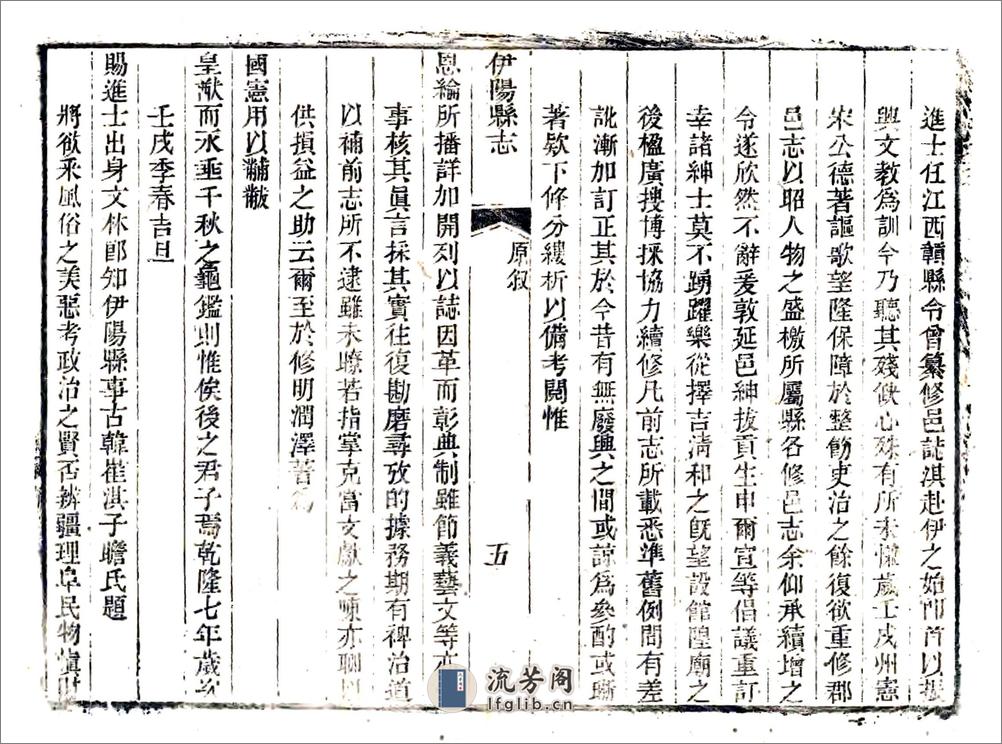 進士任江西贛縣令曾纂修邑誌淇赴伊之始即首以振
興文教為訓今乃聽其殘缺心殊有所未慊歲壬戌州憲
宋公德著謳歌望隆保障於整飭吏治之餘復欲重修郡
邑志以昭人物之盛檄所屬縣各修邑志余仰承續增之
令遂欣然不辭爰敦延邑紳拔貢生申爾宣等倡議重訂
幸諸紳士莫不踴躍樂從擇吉清和之旣望設館隍廟之
後楹廣搜博採協力續修凡前志所載悉準舊例間有差
訛漸加訂正其於今昔有無廢興之間或諒為參酌或晰
著欵下條分縷析以備考閱惟
伊陽縣志
原叙
五
恩綸所播詳加開列以誌因革而彰典制雖節義藝文等亦
事核其眞言採其實往復勘磨尋攷的據務期有裨治道
以補前志所不逮雖未瞭若指掌克當文獻之陳亦聊以
供損益之助云爾至於修明潤澤著為
國憲用以黼黻
皇猷而永垂千秋之龜鑑則惟俟後之君子焉乾隆七年歲次
壬戌季春吉旦
賜進士出身文林郎知伊陽縣事古韓崔淇子瞻氏題
將欲釆風俗之美惡考政治之賢否辨疆理阜民物
流芳阁
lfglib.cn